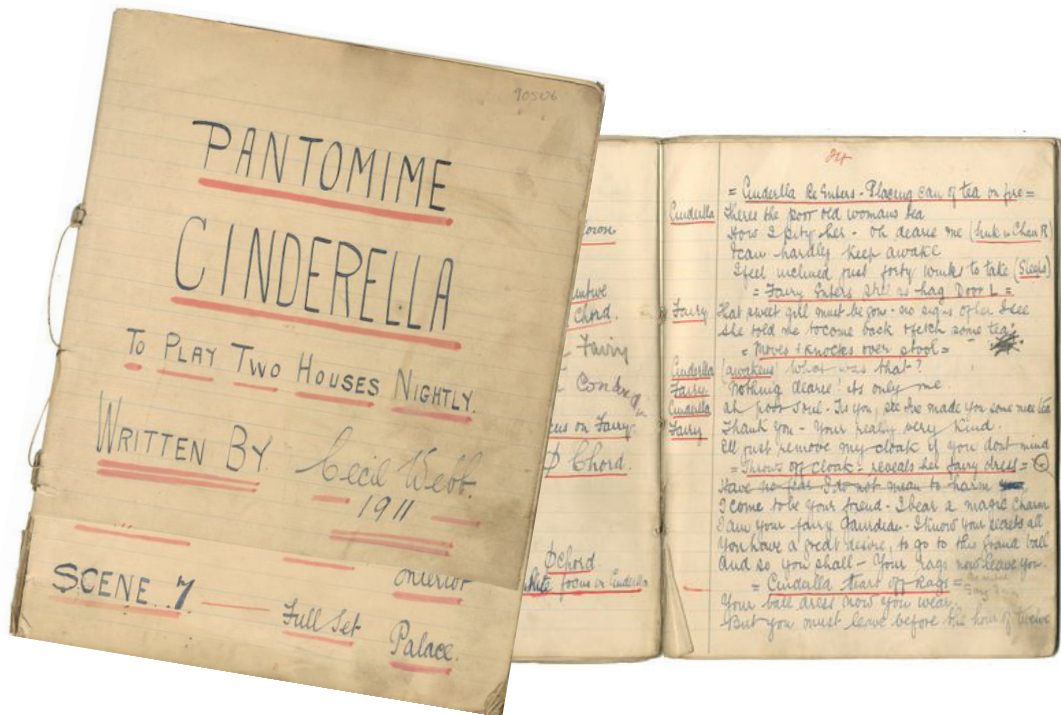 90506
PANTOMIME
CINDERELLA
TO PLAY TWO HOUSES NIGHTLY.
WRITTEN BY Cecil Webb.
1911
SCENE 7 Full Set Interior
Palace.
Chord.
Fairy
focus on Fairy
Chord.
Chord
White focus on Cinderella
24
= Cinderlla Re Enters - Placing can of tea on fire =
Cinderlla Theres the poor old womans tea
How I pity her - Oh dearie me (Sink in Chair R)
I can hardly keep awake
I feel inclined just forty winks to take (Sleeps)
= Fairy Enters Still as hag Door L =
Fairy That sweet girl must be gone - no signs of her I see
She told me to come back & fetch some tea.
= Moves & knocks over stool =
Cinderlla (awakens) What was that?
Fairy. Nothing dearie! its only me.
Cinderlla Ah poor soul - Tis you, see Ive made you some nice tea
Fairy Thank you - Your really very kind.
Ill just remove my cloak if you dont mind
= Throws off cloak - reveals her fairy dress =
Have no fear I do not mean to harm
I come to be your friend - I bear a magic charm
I am your fairy Gaurdian - I know your secrets all
You have a great desire, to go to this Grand ball
And so you shall - Your rags now leave you.
= Cinderlla tears off Rags =
Your ball dress now you wear,
But you must leave before the hour of twelve